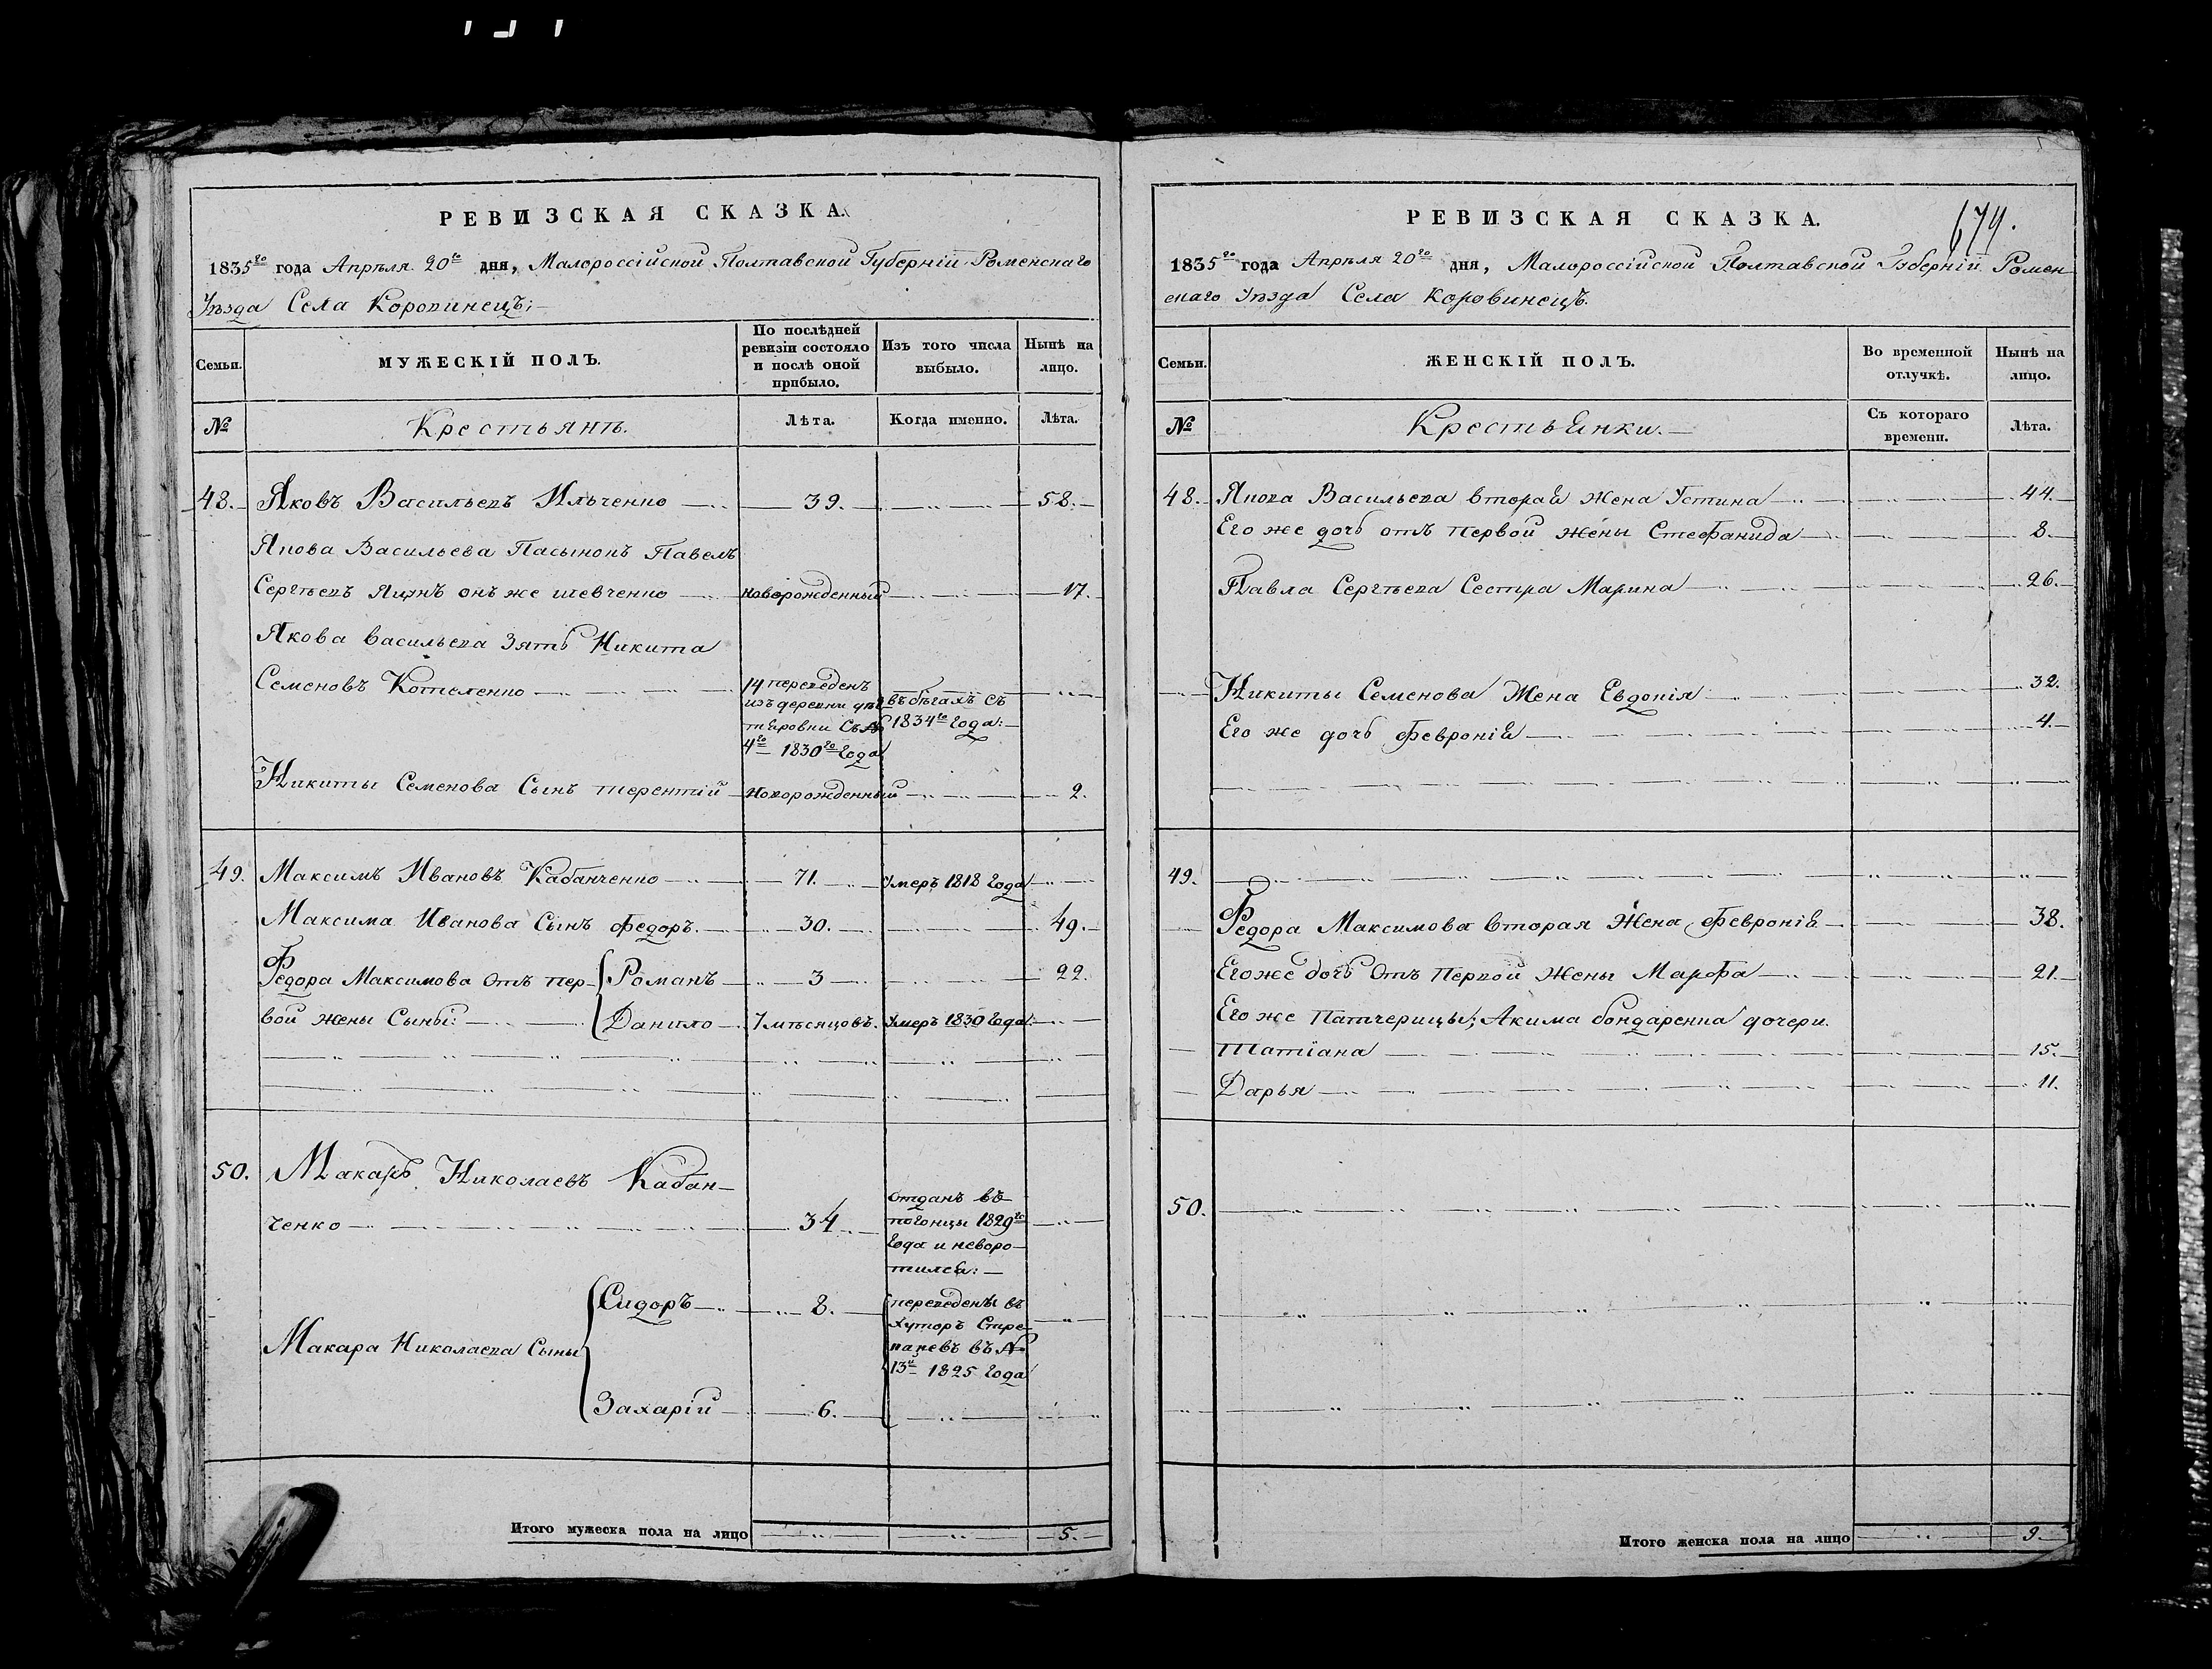 РЕВИЗСКАЯ СКАЗКА.
1835го года Апрѣля 20го дня, Малороссійской Полтавской Губерніи Роменскаго
Уѣзда Села Коровинецъ;
Семьи.
МУЖЕСКІЙ ПОЛЪ.
По послѣдней ревизіи состояло и послѣ оной прибыло.
Изъ того числа выбыло.
Нынѣ на лицо.
№
Крестьянъ.
Лѣта.
Когда именно.
Лѣта.
48. Яковъ Васильевъ Ильченко 39. 58.
Якова Васильева Пасынокъ Павелъ
Сергѣевъ онъ же шевченко новорожденный 17.
Якова васильева Зять Никита
Семеновъ Котеленко 14 переведенъ
изъ деревни въ бѣгахъ съ
1834го года:
4го 1830го Года
Никиты Семенова Сынъ терентій новорожденный 2.
49. Максимъ Ивановъ Кабанченко 71. Умеръ 1818 Года
Максима Иванова Сынъ Федоръ. 30. 49.
Федора Максимова Отъ пер- Романъ 3 22.
вой жены Сыны: Данило 7 мѣсяцовъ. Умеръ 1830 Года.
50. Макаръ Николаевъ Кабан-
ченко 34
Отданъ въ
погонцы 1829го
Года и неворо-
тился:
Макара Николаева Сыны
Сидоръ 8.
переведены въ
Хуторъ
въ №
13й 1825 Года
Захарій 6.
Итого мужеска пола на лицо 5.
РЕВИЗСКАЯ СКАЗКА.
674.
1835го года Апрѣля 20го дня, Малороссійской Полтавской Губерніи Ромен
скаго Уѣзда Села Коровинецъ.
Семьи.
ЖЕНСКІЙ ПОЛЪ.
Во временной отлучкѣ.
Нынѣ на лицо.
№
Крестьянки.
Съ котораго времени.
Лѣта.
48. Якова Васильева вторая жена Устина 44.
Его же дочь отъ первой жены Стефанида 8.
Павла Сергѣева Сестра Марина 26.
Никиты Семенова Жена Евдокія 32.
Его же дочь Февронія 4.
49.
Федора Максимова вторая Жена Февронія 38.
Его же дочь Отъ Первой Жены Марфа 21.
Его же Патчерицы; Акима бондаренка дочери.
Татіана 15.
Дарья 11.
50.
Итого женска пола на лицо 9.